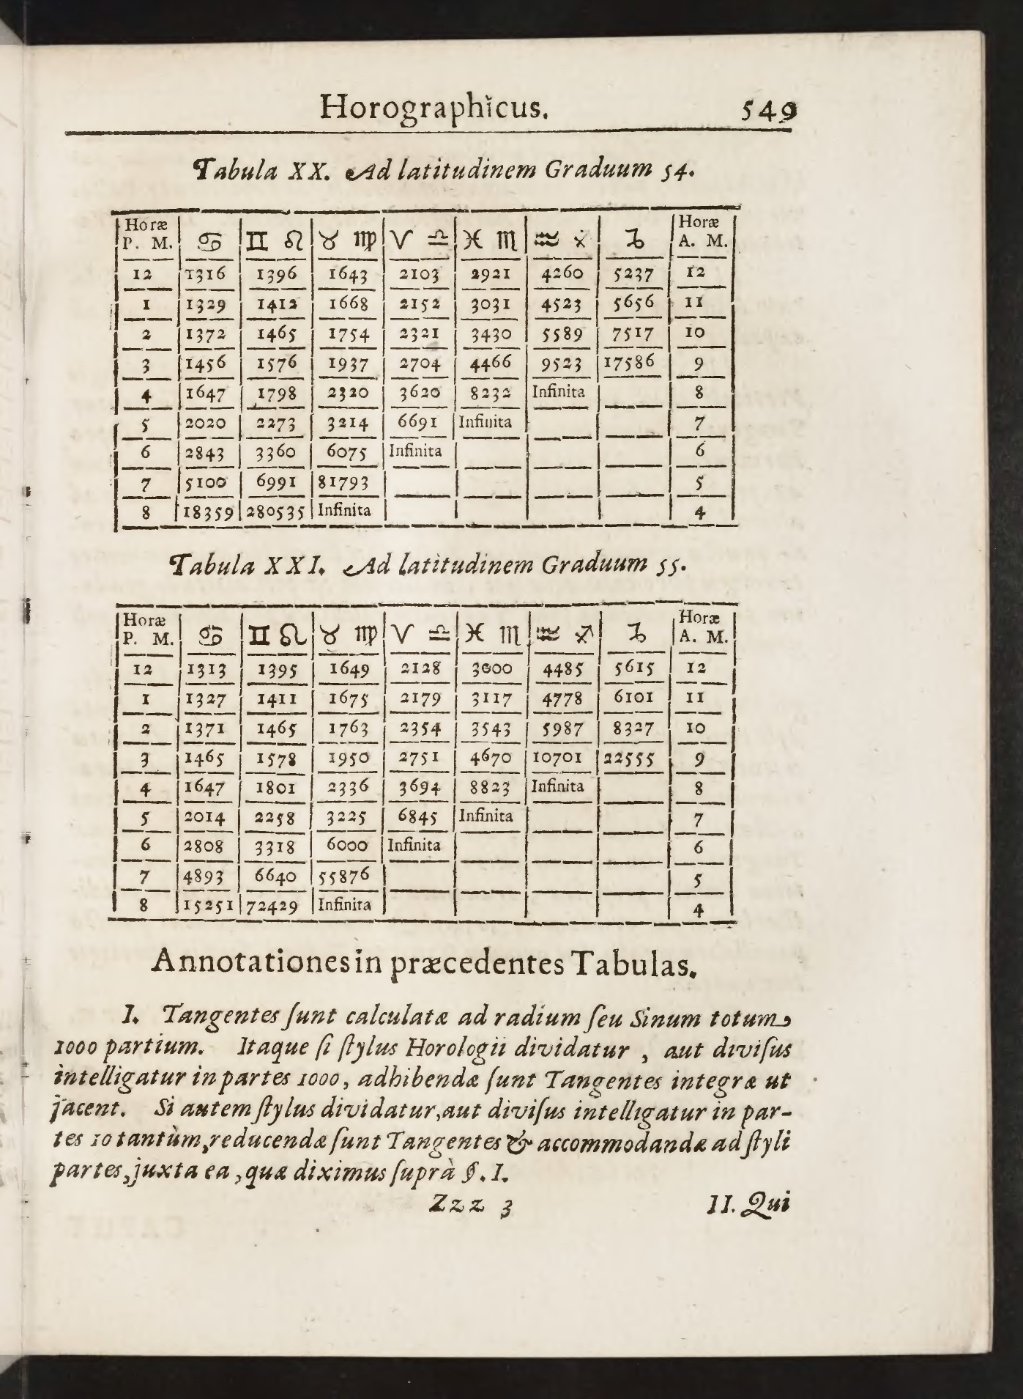 Horographicus. 549
Tabula XX. Ad latitudinem Graduum 54.
Horæ P. M. | ♋ | ♊ ♌ | ♉ ♍ | ♈ ♎ | ♓ ♏ | ♒ ♐ | ♑ | Horæ A. M.
12 | 1316 | 1396 | 1643 | 2103 | 2921 | 4260 | 5237 | 12
1 | 1329 | 1412 | 1668 | 2152 | 3031 | 4523 | 5656 | 11
2 | 1372 | 1465 | 1754 | 2321 | 3430 | 5589 | 7517 | 10
3 | 1456 | 1576 | 1937 | 2704 | 4466 | 9523 | 17586 | 9
4 | 1647 | 1798 | 2320 | 3620 | 8232 | Infinita | | 8
5 | 2020 | 2273 | 3214 | 6691 | Infinita | | | 7
6 | 2843 | 3360 | 6075 | Infinita | | | | 6
7 | 5100 | 6991 | 81793 | | | | | 5
8 | 18359 | 280535 | Infinita | | | | | 4
Tabula XXI. Ad latitudinem Graduum 55.
Horæ P. M. | ♋ | ♊ ♌ | ♉ ♍ | ♈ ♎ | ♓ ♏ | ♒ ♐ | ♑ | Horæ A. M.
12 | 1313 | 1395 | 1649 | 2128 | 3000 | 4485 | 5615 | 12
1 | 1327 | 1411 | 1675 | 2179 | 3117 | 4778 | 6101 | 11
2 | 1371 | 1465 | 1763 | 2354 | 3543 | 5987 | 8327 | 10
3 | 1465 | 1578 | 1950 | 2751 | 4670 | 10701 | 22555 | 9
4 | 1647 | 1801 | 2336 | 3694 | 8823 | Infinita | | 8
5 | 2014 | 2258 | 3225 | 6845 | Infinita | | | 7
6 | 2808 | 3318 | 6000 | Infinita | | | | 6
7 | 4893 | 6640 | 55876 | | | | | 5
8 | 15251 | 72429 | Infinita | | | | | 4
Annotationes in præcedentes Tabulas.
I. Tangentes ſunt calculatæ ad radium ſeu Sinum totum
1000 partium. Itaque ſi ſtylus Horologii dividatur , aut diviſus
intelligatur in partes 1000, adhibendæ ſunt Tangentes integræ ut
jacent. Si autem ſtylus dividatur, aut diviſus intelligatur in par-
tes 10 tantùm, reducendæ ſunt Tangentes & accommodandæ ad ſtyli
partes, juxta ea, quæ diximus ſuprà §. I.
Zzz 3 II. Qui